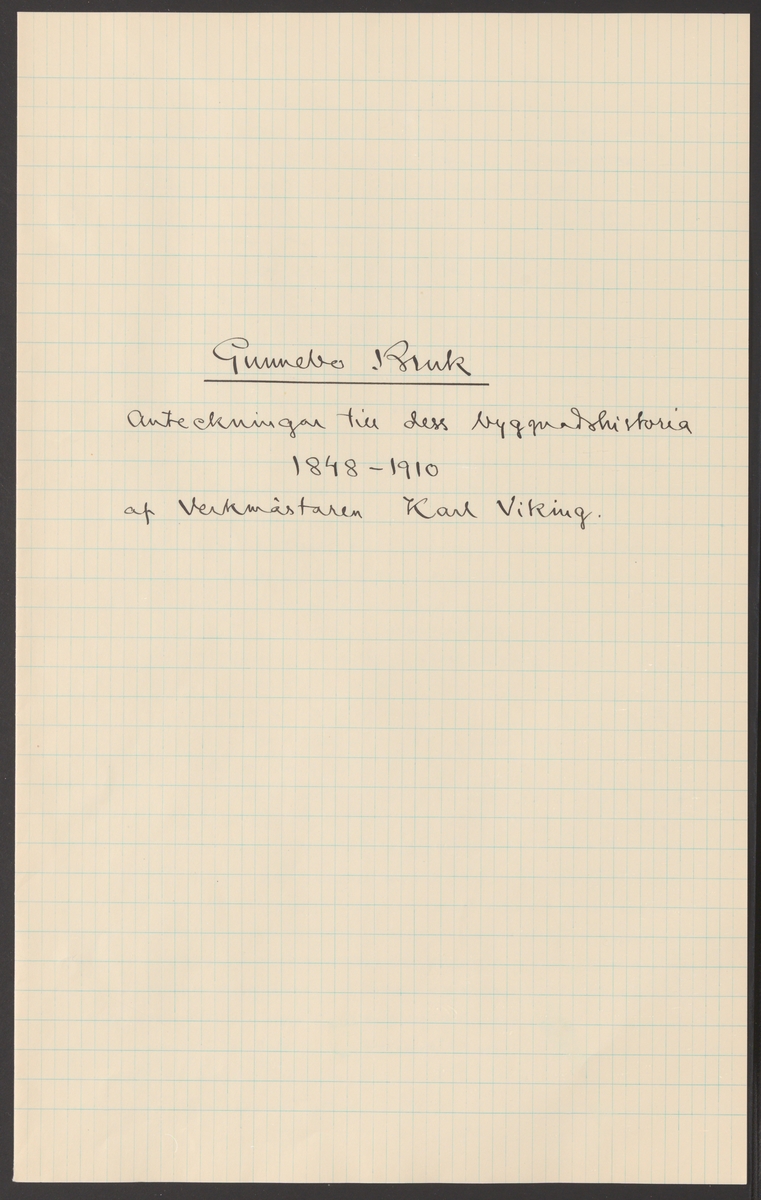 Gunnebo Bruk
Anteckningar till dess byggnadshistoria
1848-1910
af Verkmästaren Karl Viking.